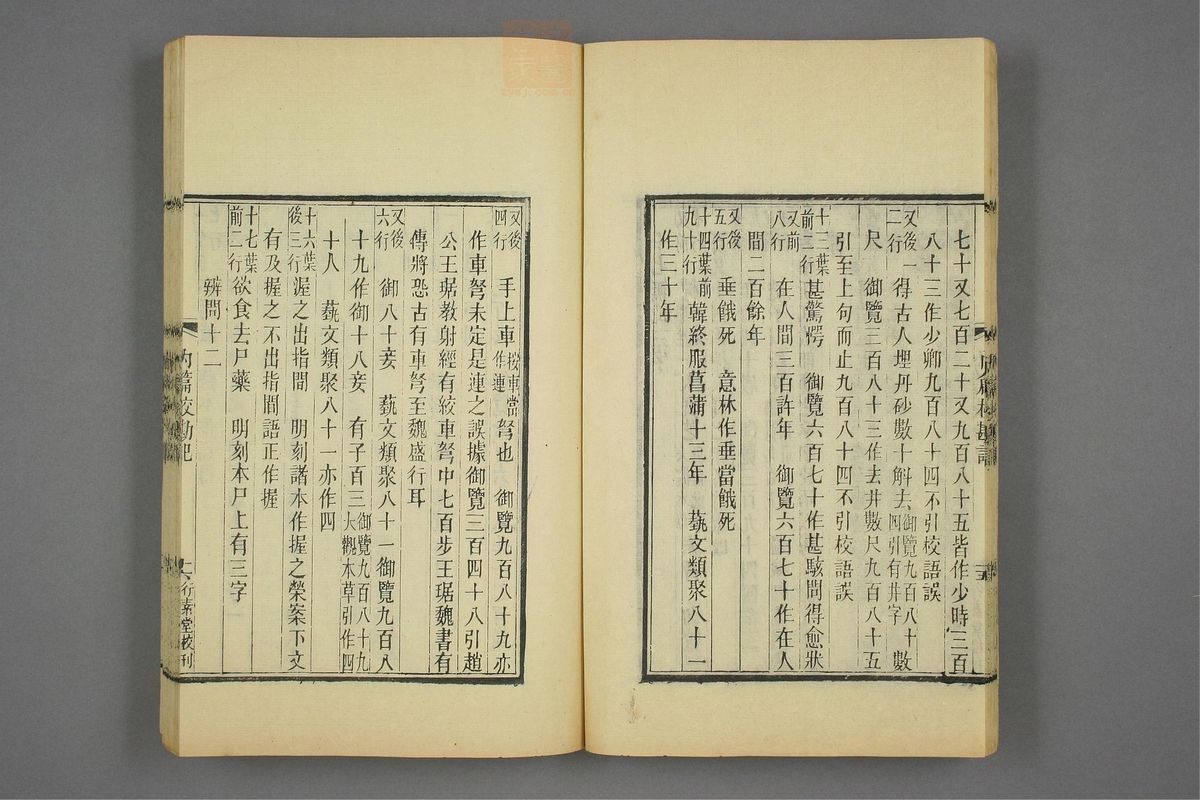 七十又七百二十又九百八十五皆作少時三百
八十三作少卿九百八十四不引校語誤
又後一二行 得古人埋丹砂數十斛去 御覽九百八十四引有井字 數
尺 御覽三百八十三作去井數尺九百八十五
引至上句而止九百八十四不引校語誤
十三葉前二行 甚驚愕 御覽六百七十作甚駭問得愈狀
又前八行 在人間三百許年 御覽六百七十作在人
間二百餘年
又後五行 垂餓死 意林作垂當餓死
十四葉前九十行 韓終服菖蒲十三年 蓺文類聚八十一
作三十年
又後四行 手上車 按車當作連 弩也 御覽九百八十九亦
作車弩未定是連之誤據御覽三百四十八引趙
公王琚教射經有絞車弩中七百步王琚魏書有
傳將恐古有車弩至魏盛行耳
又後六行 御八十妾 蓺文類聚八十一御覽九百八
十九作御十八妾 有子百三 御覽九百八十九大觀本草引作四
十人 蓺文類聚八十一亦作四
十六葉後三行 渥之出指間 明刻諸本作握之榮案下文
有及握之不出指間語正作握
十七葉前二行 欲食去尸藥 明刻本尸上有三字
辨問十二
內篇校勘記
行素堂校刊